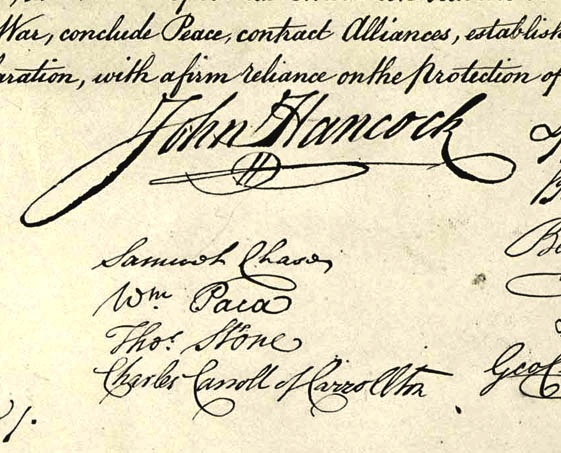 War, conclude Peace, contract Alliances, establish
laration, with a firm reliance on the protection of
John Hancock
Samuel Chase
Wm Paca
Thos. Stone
Charles Carroll of Carrollton
Geo